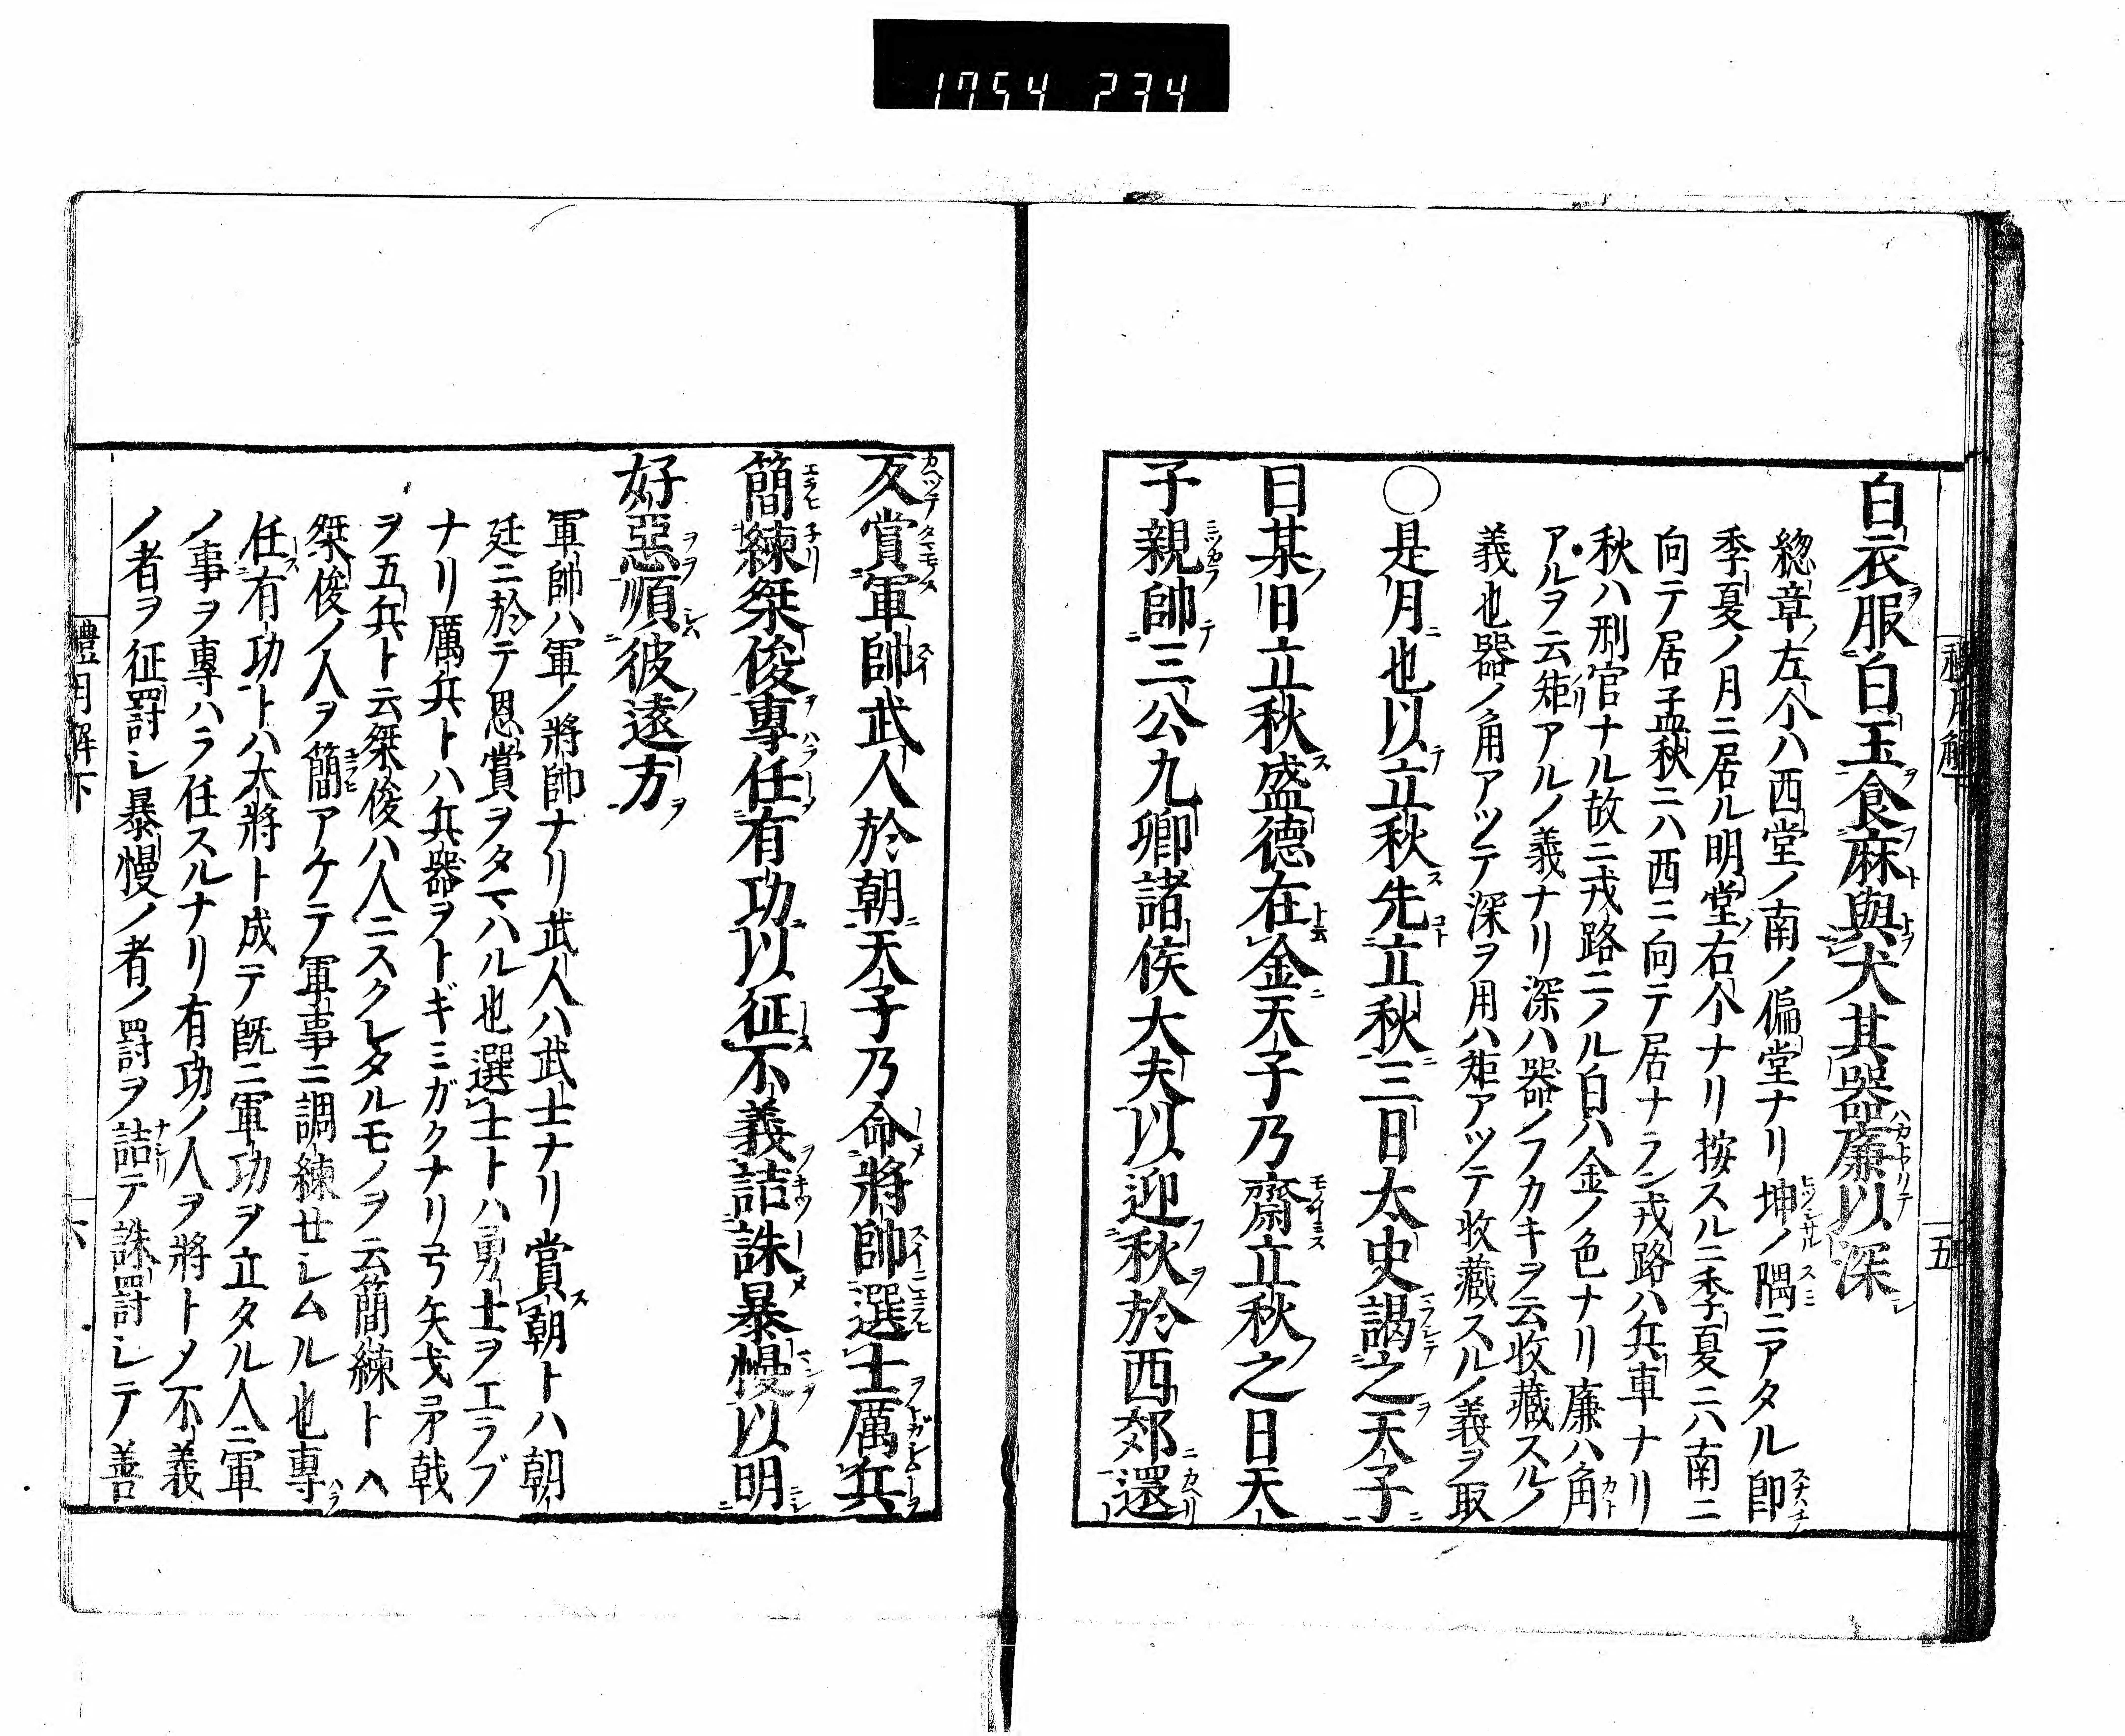 1754 234
白衣服白玉食麻與犬其器廉以深
總章ノ左个ハ西堂ノ南ノ偏堂ナリ坤ノ隅ニアタル即
季夏ノ月ニ居ル明堂ノ右个ナリ按スルニ季夏ニハ南ニ
向テ居孟秋ニハ西ニ向テ居ナラン戎路ハ兵車ナリ
秋ハ刑官ナル故ニ戎路ニノル白ハ金ノ色ナリ廉ハ角
アルヲ云矩アルノ義ナリ深ハ器ノフカキヲ云收藏スルノ
義也器ノ角アツテ深ヲ用ハ矩アツテ收藏スルノ義ヲ取
○是月也以立秋先立秋三日太史謁之天子
曰某日立秋盛德在金天子乃齋立秋之日天
子親帥三公九卿諸侯大夫以迎秋於西郊還
五
反賞軍帥武人於朝天子乃命將帥選士厲兵
簡練桀俊專任有功以征不義詰誅暴慢以明
好惡順彼遠方
軍帥ハ軍ノ將帥ナリ武人ハ武士ナリ賞朝トハ朝
廷ニ於テ恩賞ヲタマハル也選士トハ勇士ヲエラブ
ナリ厲兵トハ兵器ヲトギミガクナリ弓矢戈矛戟
ヲ五兵ト云桀俊ハ人ニスクレタルモノヲ云簡練トハ
桀俊ノ人ヲ簡アケテ軍事ニ調練せシムル也專
任有功トハ大將ト成テ既ニ軍功ヲ立タル人ニ軍
ノ事ヲ專ハラ任スルナリ有功ノ人ヲ將トメ不義
ノ者ヲ征罸シ暴慢ノ者ノ罸ヲ詰テ誅罸シテ善
禮月解下
六